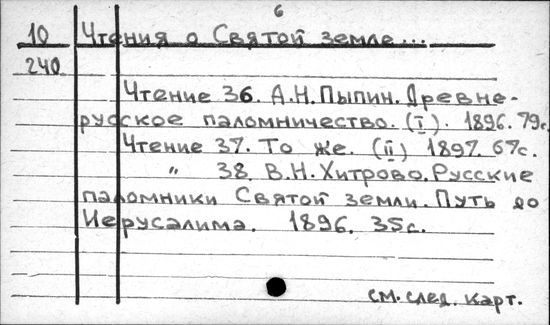 6
10 Чтения о Святой земле...
240
Чтение 36. А.Н.Пыпин. Древне-
русское паломничество. (I). 1896. 79с.
Чтение 37. То же. (II) 1897. 67с.
" 38. В.Н.Хитрово. Русские
паломники Святой земли. Путь до
Иерусалима. 1896. 35с.
см. след. карт.